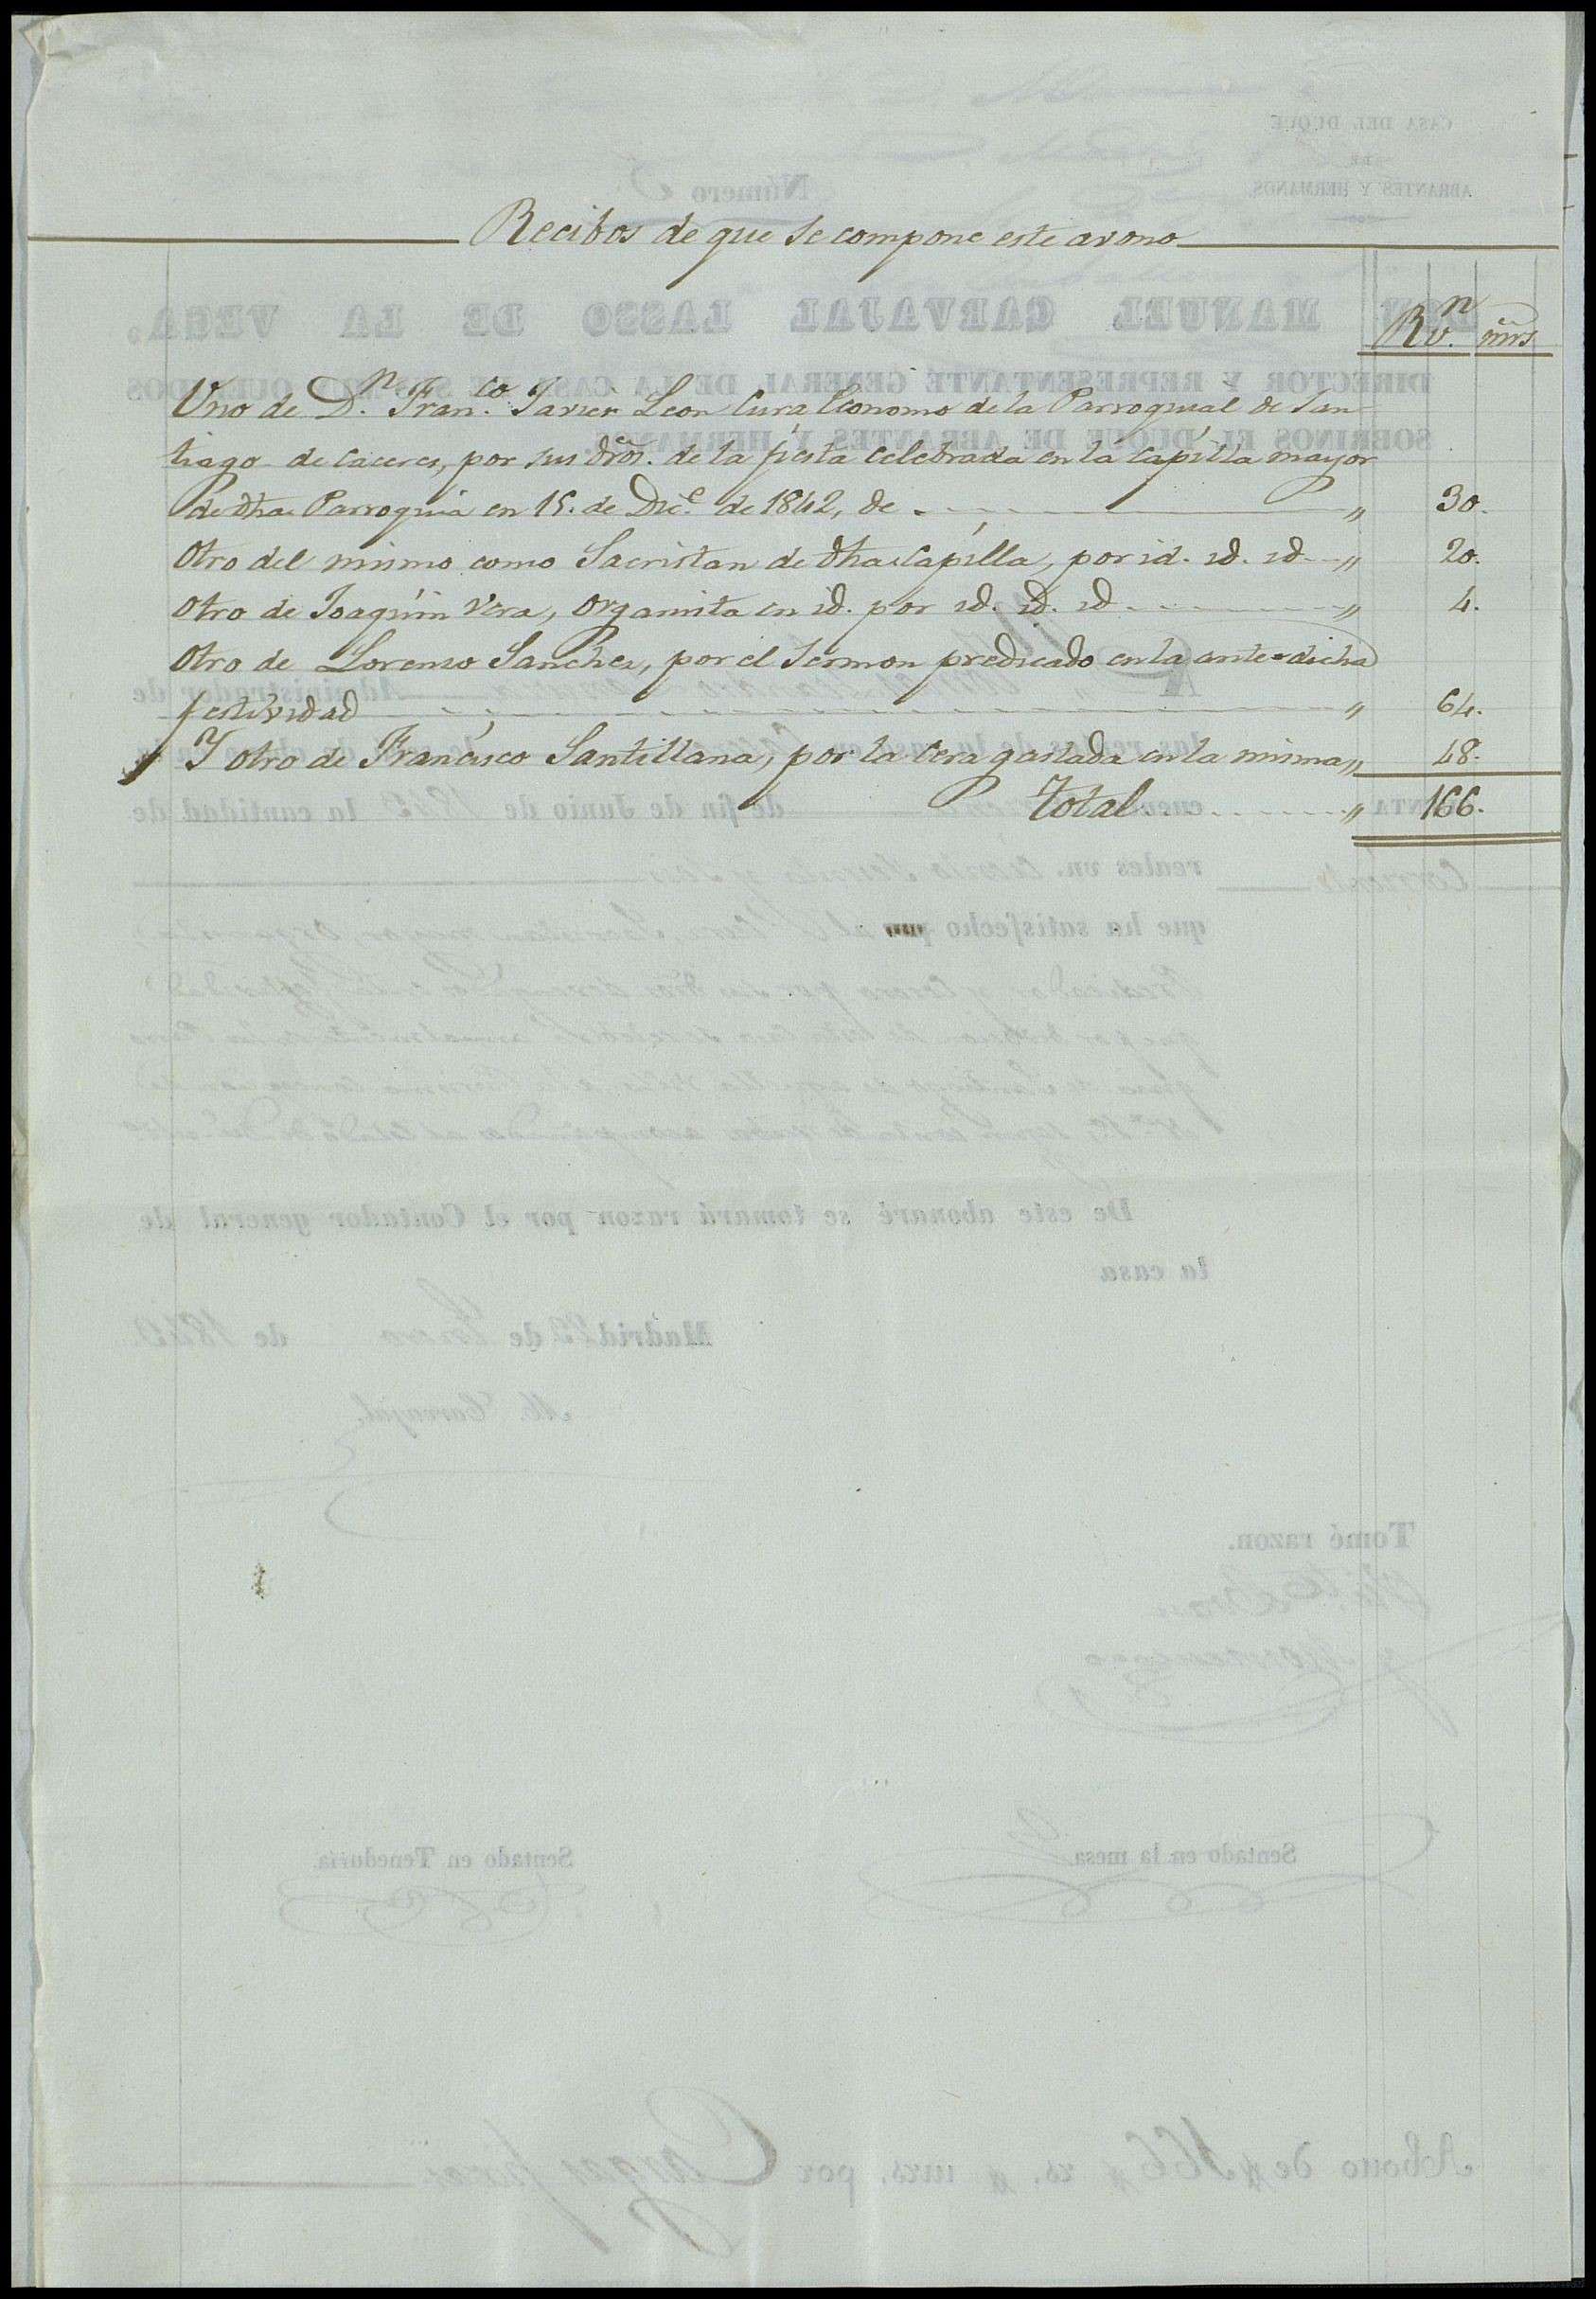 Recibos de que se compone este avono
Rn. v. mrs
Uno de Dn. Franco. Javier Leon Cura Economo de la Parroquial de San-
tiago de Caceres, por sus dros. de la fiesta celebrada en la capilla mayor
de dha Parroquia en 15. de Dice. de 1842, de " 30.
Otro del mismo como Sacristan de dha Capilla, por id. id. id " 20.
Otro de Joaquin Vera, organista en id. por id. id. id " 4.
Otro de Lorenzo Sanchez, por el Sermon predicado en la ante-dicha
festividad " 64.
Y otro de Francisco Santillana, por la Cera gastada en la misma " 48.
Total " 166.